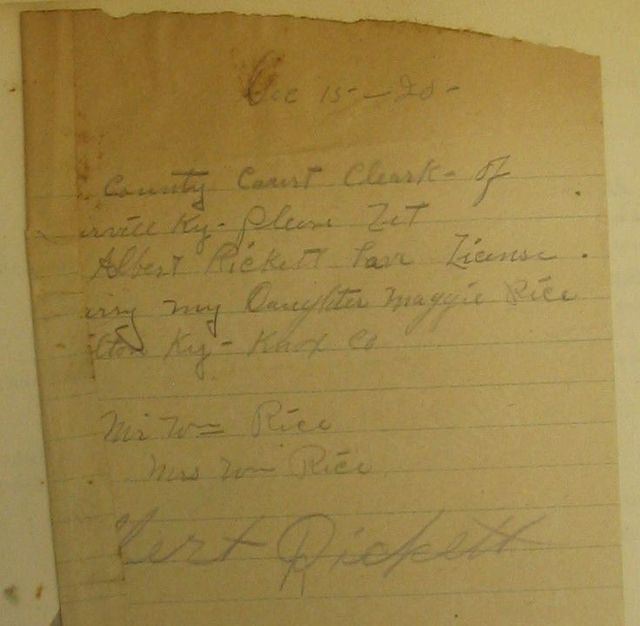 Dec 15 - 20 -
County Court Cleark - of
rville Ky - please Let
Albert Pickett have License
rry my Daughter Maggie Rice
lton Ky - Knox Co
Mr Wm Rice
Mrs Wm Rice
bert Pickett